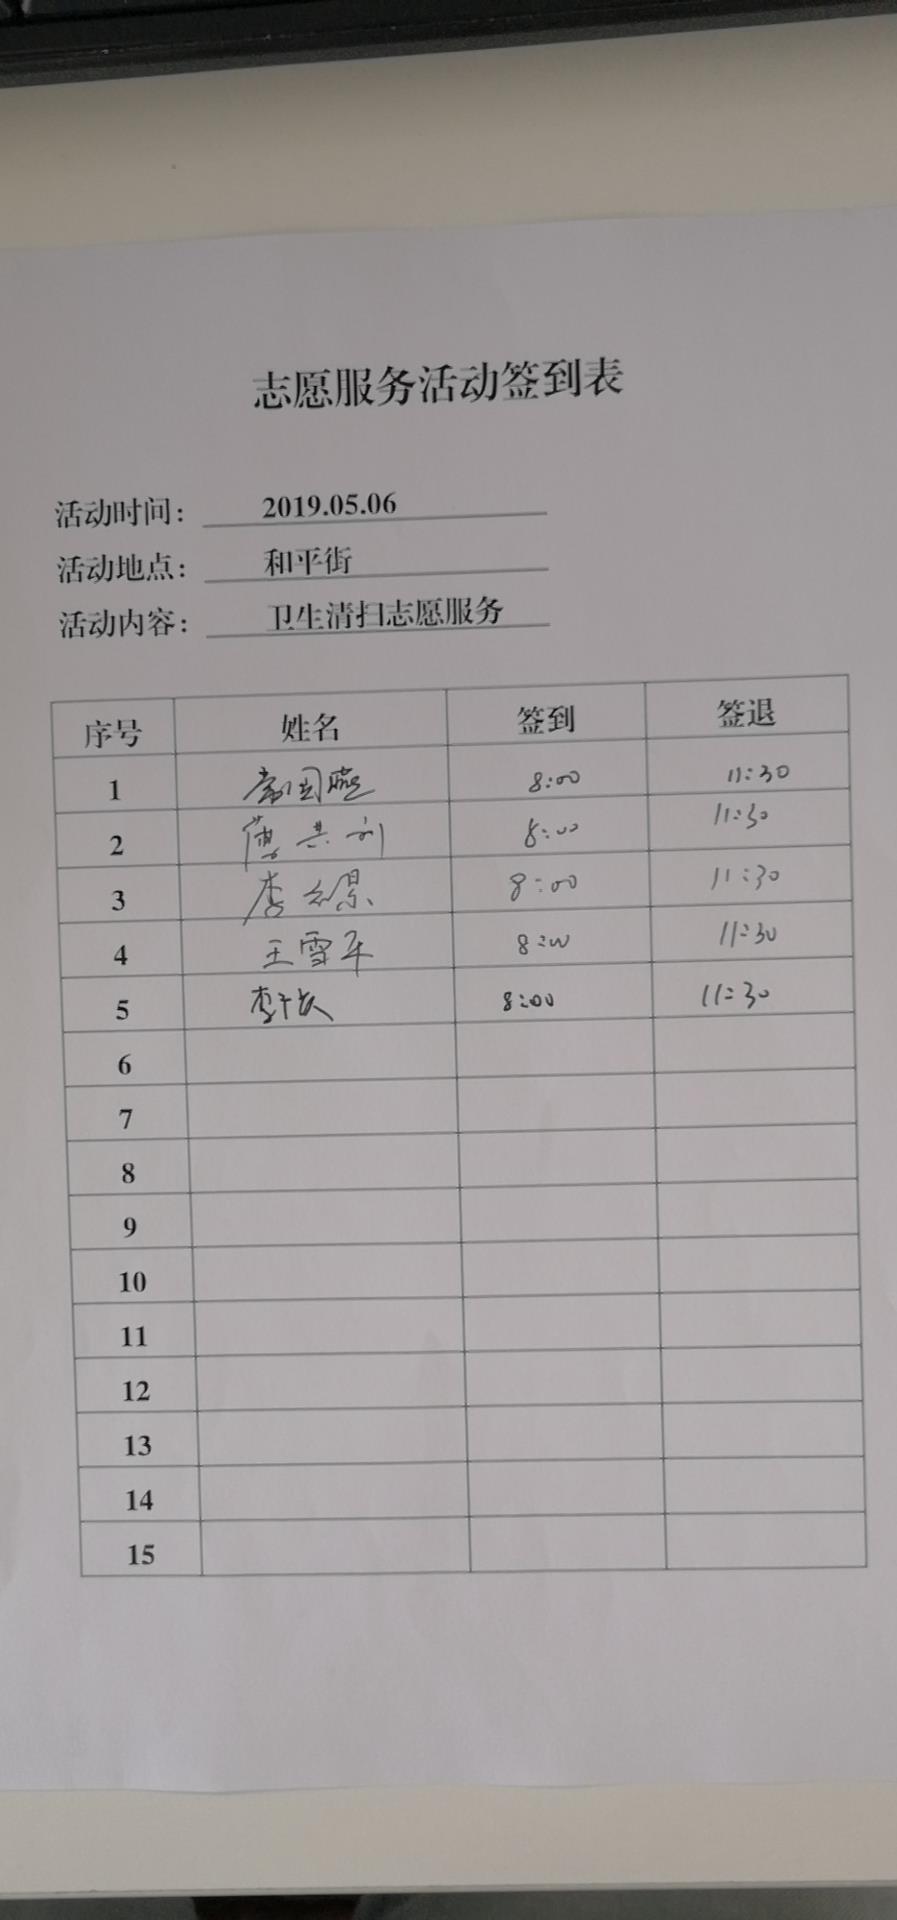 志愿服务活动签到表
活动时间: 2019.05.06
活动地点: 和平街
活动内容: 卫生清扫志愿服务
序号 姓名 签到 签退
1 8:00 11:30
2 8:00 11:30
3 李 8:00 11:30
4 王雪平 8:00 11:30
5 李 8:00 11:30
6
7
8
9
10
11
12
13
14
15